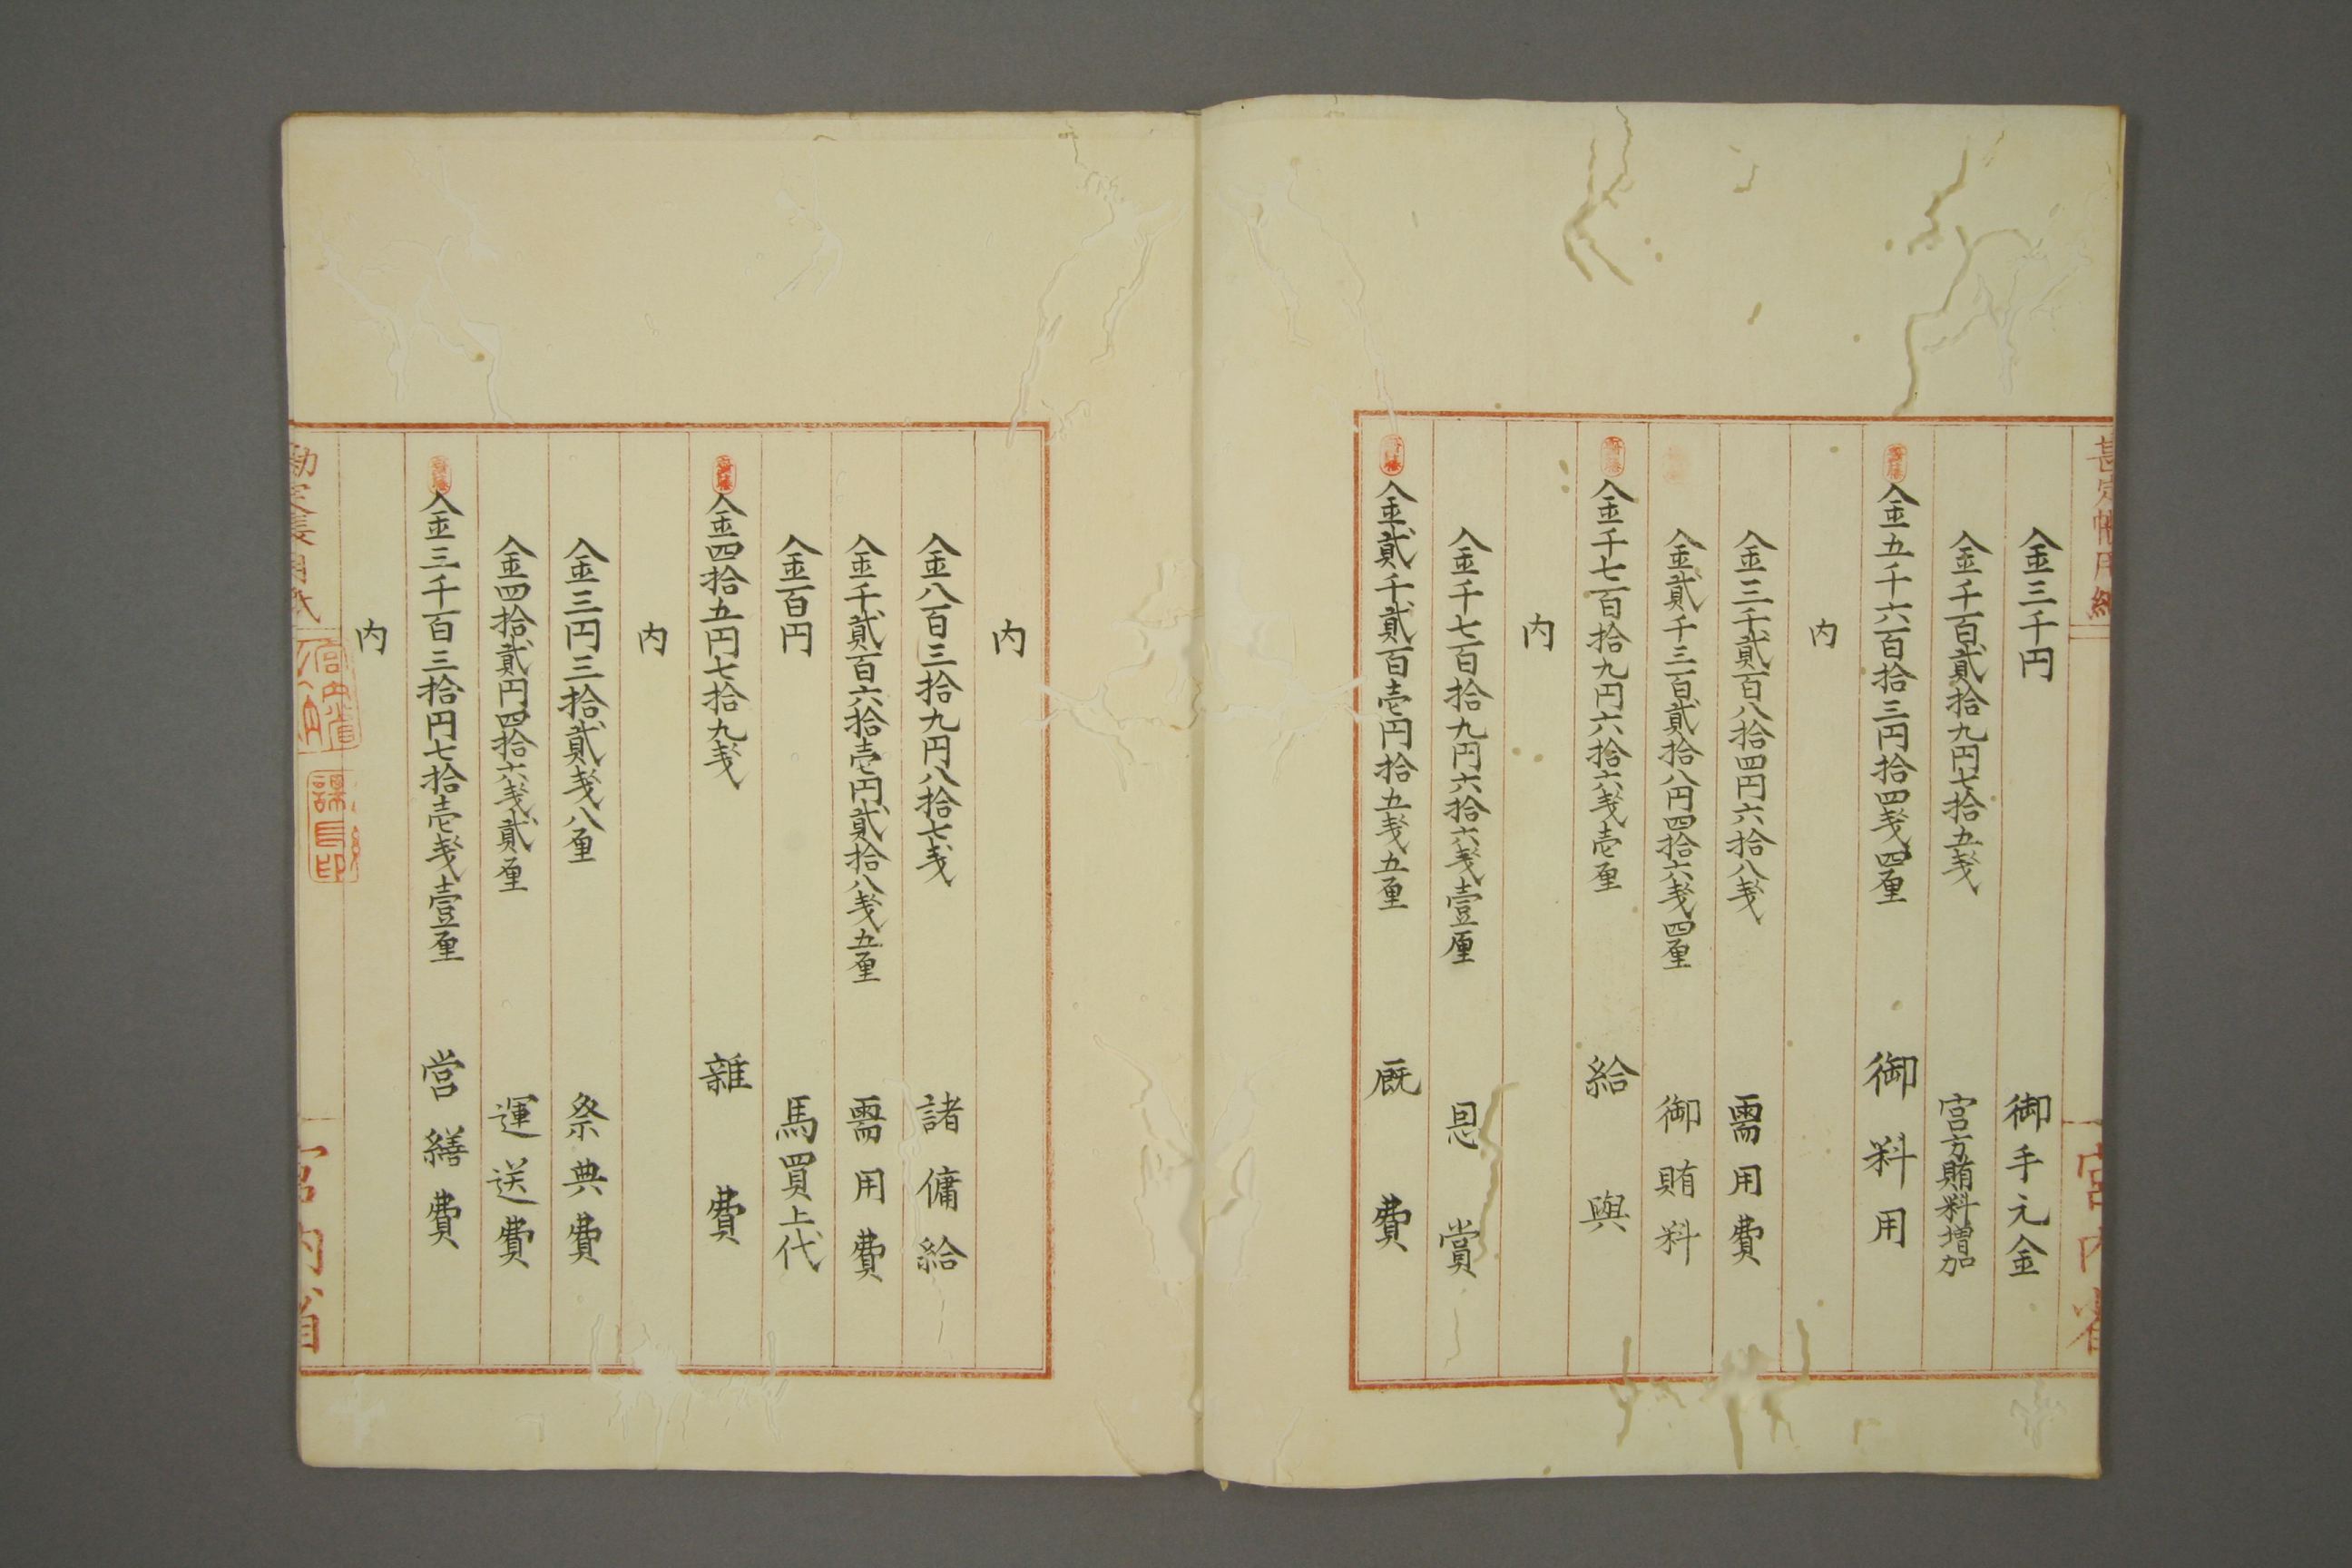 勘定帳用紙
宮内省
金三千円 御手元金
金千百貳拾九円七拾五戔 宮方賄料増加
金五千六百拾三円拾四戔四厘 御料用
内
金三千貳百八拾四円六拾八戔 需用費
金貳千三百貳拾八円四拾六戔四厘 御賄料
金千七百拾九円六拾六戔壱厘 給與
内
金千七百拾九円六拾六戔壹厘 恩賞
金貳千貳百壱円拾五戔五厘 厩費
内
金八百三拾九円八拾七戔 諸傭給
金千貳百六拾壱円貳拾八戔五厘 需用費
金百円 馬買上代
金四拾五円七拾九戔 雑費
内
金三円三拾貳戔八厘 祭典費
金四拾貳円四拾六戔貳厘 運送費
金三千百三拾円七拾壱戔壹厘 営繕費
内
勘定帳用紙
宮内省
課長印
宮内省